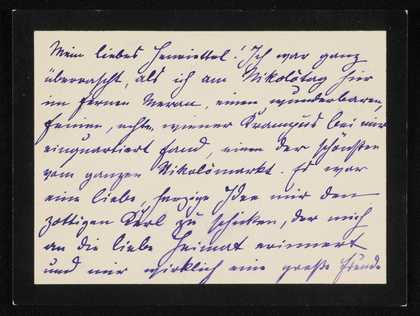 Mein liebes Henriettel! Ich war ganz
überrascht, als ich am Nikolotag hier
im fernen Meran, einen wunderbaren,
feinen, echten wiener Krampus bei mir
einquartiert fand, einen der schönsten
vom ganzen Nikolomarkt. Es war
eine liebe, herzige Idee mir den
zottigen Kerl zu schicken, der mich
an die liebe Heimat erinnert
und mir wirklich eine große Freude